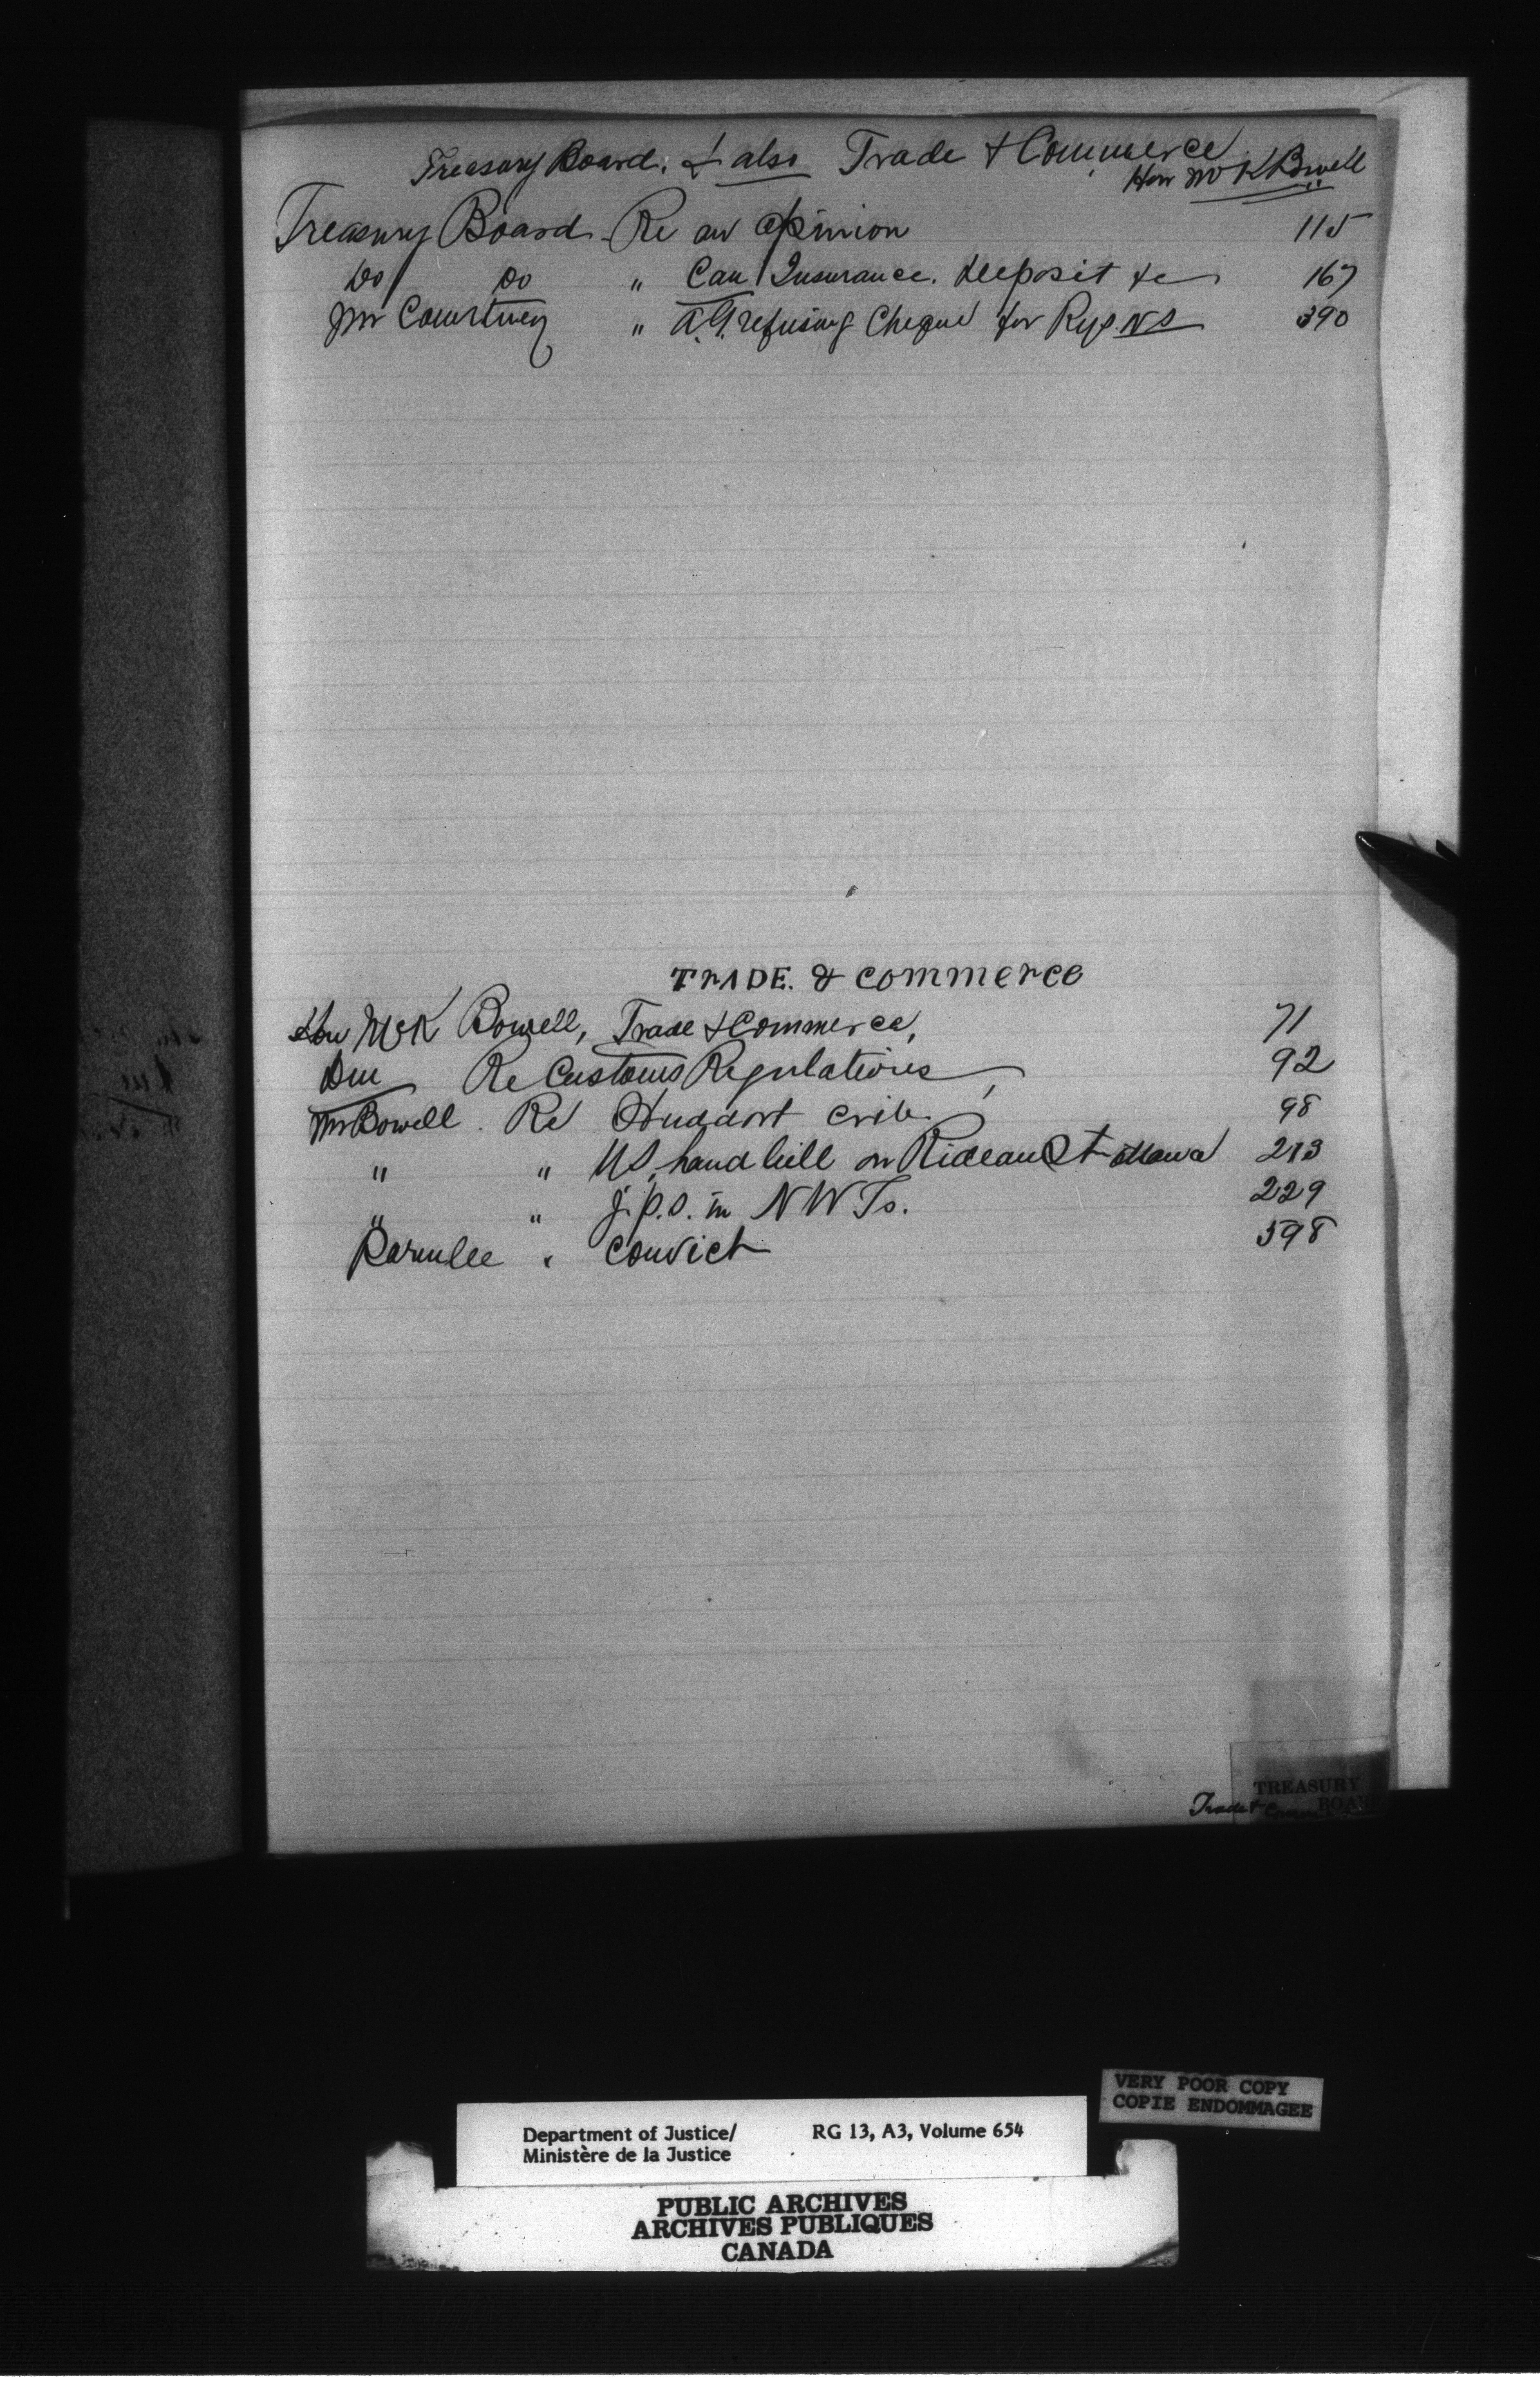 Treasury Board. & also Trade & Commerce
Hon McK Bowell
Treasury Board Re an opinion 115
Do Do " Can Insurance. deposit &c 167
Mr Courtney " A.G. refusing Cheque for Rys. NS 390
TRADE. & commerce
Hon McK Bowell, Trade & Commerce, 71
Re Customs Regulations, 92
Mr Bowell. Re Huddart 98
" " US, handbill on Rideau St Ottawa 213
" " J.P.s. in N W Ts. 229
Parmlee " Convict 598
TREASURY
BOARD
Trade &
VERY POOR COPY
COPIE ENDOMMAGEE
Department of Justice/ RG 13, A3, Volume 654
Ministère de la Justice
PUBLIC ARCHIVES
ARCHIVES PUBLIQUES
CANADA